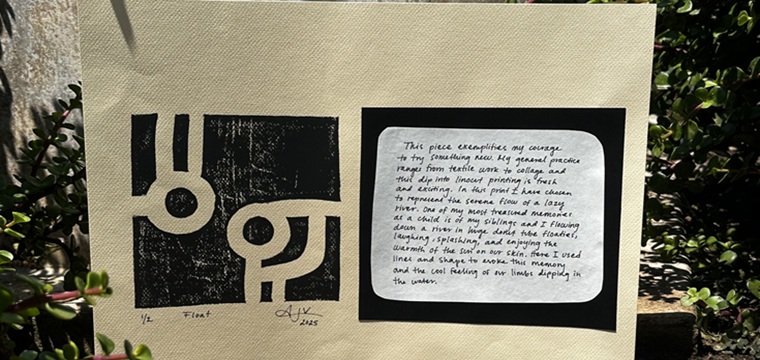 This piece exemplifies my courage
to try something new. My general practice
ranges from textile work to collage and
this dip into linocut printing is fresh
and exciting. In this print I have chosen
to represent the serene flow of a lazy
river. One of my most treasured memories
as a child is of my siblings and I flowing
down a river in huge donut tube floaties,
laughing, splashing, and enjoying the
warmth of the sun on our skin. Here I used
lines and shape to evoke this memory
and the cool feeling of our limbs dipping in
the water.
1/2 Float
2025